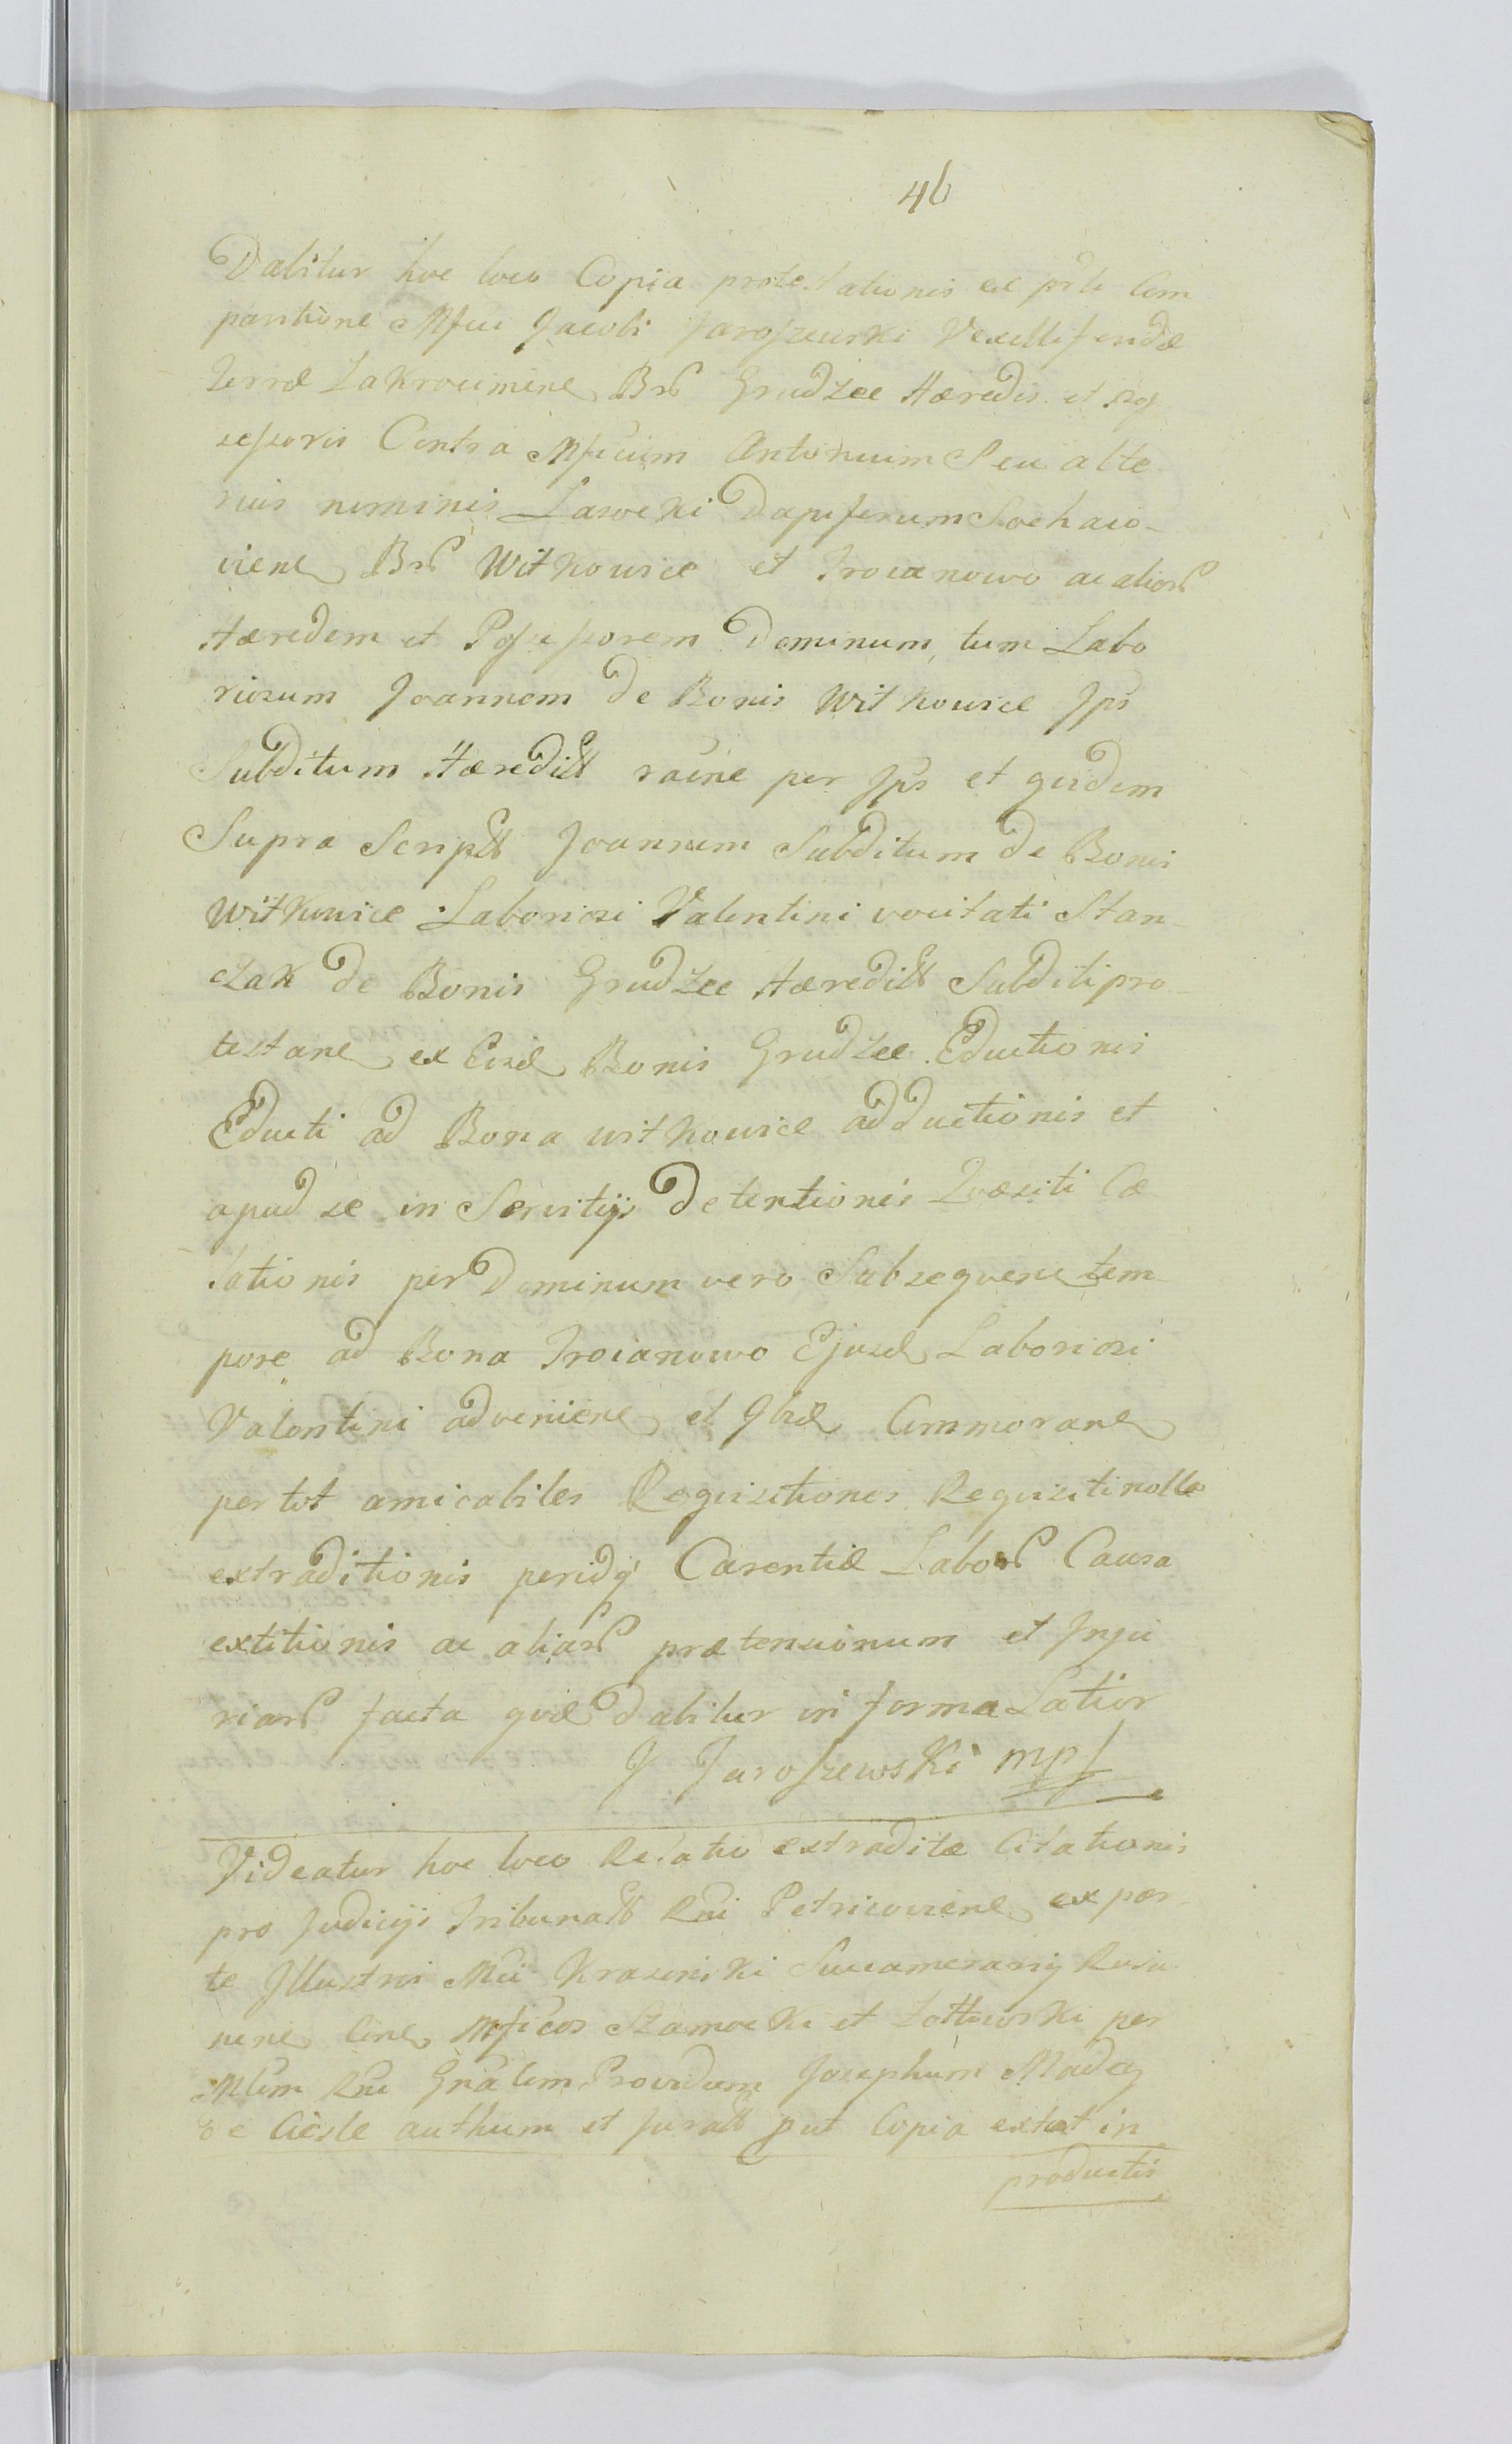 46
Dabitur hoc loco Copia protestationis ex prte Com
paritione Mfici Jacobi Jaroszewski Vexilliferidæ
Terræ Zakroczimene Brs Grudzee Hæredis et Pos
sessoris Contra Mficum Antonium Seu alte
rius nominis Lasocki Dapiferum Sochaco-
viene Brs Witkowice et Troianowo ac aliors
Hæredem et Possessorem Dominum, tum Labo
riosum Joannem de Bonis Witkowice Jps
Subditum Hæredittt raõne per Jps et quidem
Supra Script Joannem Subditum de Bonis
Witkowice Laboriosi Valentini vocitati Stan-
czak de Bonis Grudzee Hæredit Subditi pro-
testane ex Eisd Bonis Grudzee Eductionis
Educti ad Bona Witkowice adductionis et
apud se in Servitijs Detentionis Quæsiti Cæ
lationis per Dominum vero Subsequene tem
pore ad Bona Troianowo Ejusd Laboriosi
Valentini adveniene et Jbid Commorane
per tot amicabiles Requisitiones Requisiti nolle
extraditionis peridq Carentiæ Labors Causa
extitionis ac aliars prætensionum et Inju
riars facta quæ dabitur in forma Latior
J Jaroszewski mp
Videatur hoc loco Relatio extraditæ Citationis
pro Judicijs Tribunal Rni Petricoviene ex par-
te Illustris Mci Krasinski Succamerarij Rosa
nene Cone Mficos Szamocki et Zołtowski per
Mlem Rni Gnalem Providum Josephum
de Ciesle authum et Jurat put Copia extat in
productis